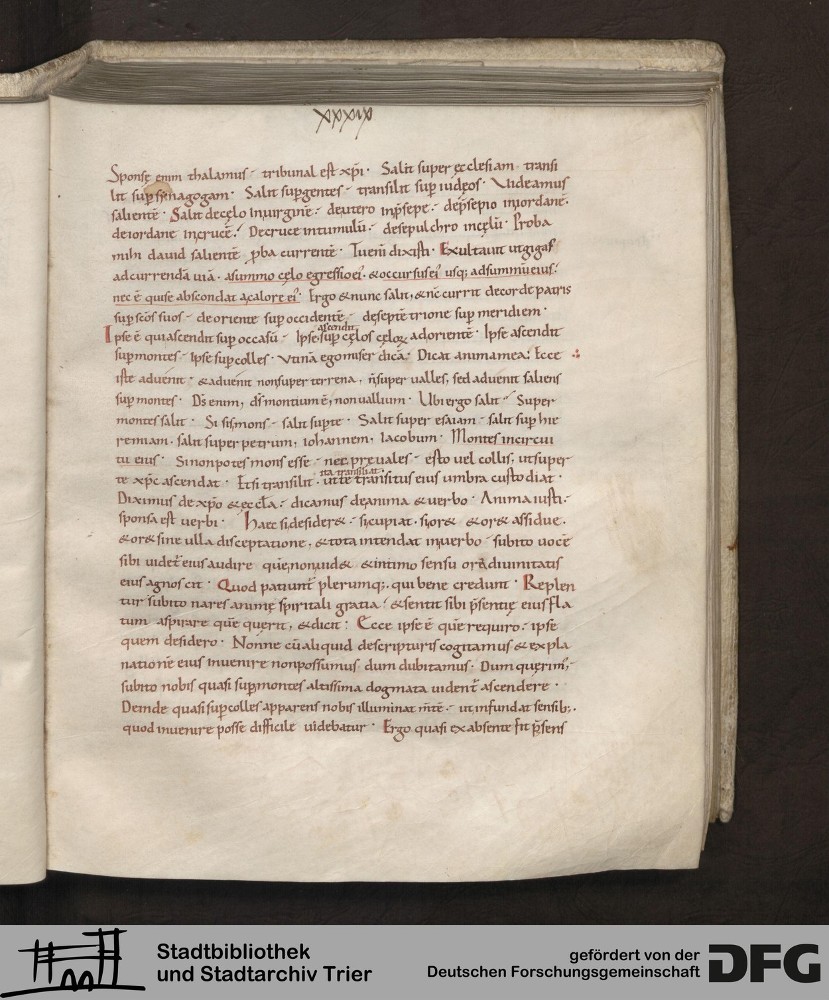 xxxix
Sponsę enim thalamus · tribunal est xp̄i · Salit super ęcclesiam · transi
lit sup̱ synagogam · Salit sup̱ gentes · transilit sup̱ iudęos · Uideamus
salientē · Salit de cęlo in uirginē · de utero in p̄sepe · de p̄sepio in iordanē ·
de iordane in crucē · De cruce in tumulū · de sepulchro in cęlū · Proba
mihi dauid salientē p̱ba currentē · Tu enī dixisti · Exultauit ut gigas
ad currendā uiā · a summo cęlo egressio ei' · & occursus ei' usq; ad summū eius ·
nec ē qui se abscondat a calore ei' · Ergo & nunc salit, & nc̄ currit de corde patris
sup̱ sc̄os suos · de oriente sup̱ occidentē · de septētrione sup̱ meridiem ·
Ipse ē qui ascendit sup̱ occasū · Ipse sup̱ cęlos cęloꝝ ad orientē · Ipse ascendit
ascendit
sup̱ montes · Ipse sup̱ colles · Utinā ego miser dicā · Dicat anima mea · Ecce
iste aduenit · & aduenit non super terrena, n̄ super ualles, sed aduenit saliens
sup̱ montes · Ds̄ enim, ds̄ montium ē, non uallium · Ubi ergo salit · Super
montes salit · Si sis mons · salit sup̱ te · Salit super esaiam · salit sup̱ hie
remiam · salit super petrum, iohannem, iacobum · Montes in circui
tu eius · Si non potes mons esse · nec p̱ręuales · esto uel collis, ut super
te xp̄c ascendat · Et si transilit · ut te transitus eius umbra custodiat ·
ita transiliat
Diximus de xp̄o & ęccl̄a · dicamus de anima & uerbo · Anima iusti ·
sponsa est uerbi · Haec si desider& · si cupiat · si or& & or& assidue ·
& or& sine ulla disceptatione, & tota intendat in uerbo · subito uocē
sibi uidet̄ eius audire quē non uid& · & intimo sensu odorē diuinitatis
eius agnoscit · Quod patiunt̄ plerumq; qui bene credunt · Replen
tur subito nares animę spiritali gratia · & sentit sibi p̄sentię eius fla
tum aspirare quē querit, & dicit · Ecce ipse ē quē requiro · ipse
quem desidero · Nonne cū aliquid de scripturis cogitamus & expla
nationē eius inuenire non possumus dum dubitamus · Dum querim';
subito nobis quasi sup̱ montes altissima dogmata uident̄ ascendere ·
Deinde quasi sup̱ colles apparens nobis illuminat m̄tē · ut infundat sensib; ·
quod inuenire posse difficile uidebatur · Ergo quasi ex absente fit p̄sens
Stadtbibliothek
und Stadtarchiv Trier
gefördert von der
Deutschen Forschungsgemeinschaft
DFG